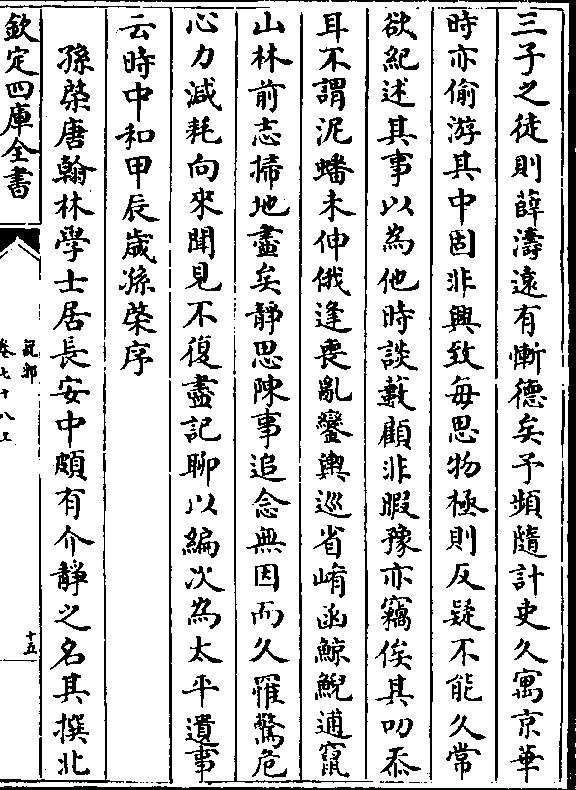 三子之徒則薛濤遠有慚德矣予頻隨計吏久寓京華
時亦偷游其中固非興致毎思物極則反疑不能久常
欲紀述其事以為他時談藪顧非暇豫亦竊俟其叨忝
耳不謂泥蟠未伸俄逢喪亂鑾輿巡省崤函鯨鯢逋竄
山林前志掃地盡矣靜思陳事追念無因而久罹驚危
心力減耗向來聞見不復盡記聊以編次為太平遺事
云時中和甲辰歳孫棨序
孫棨唐翰林學士居長安中頗有介靜之名其撰北
欽定四庫全書
說郛
卷七十八上
十五